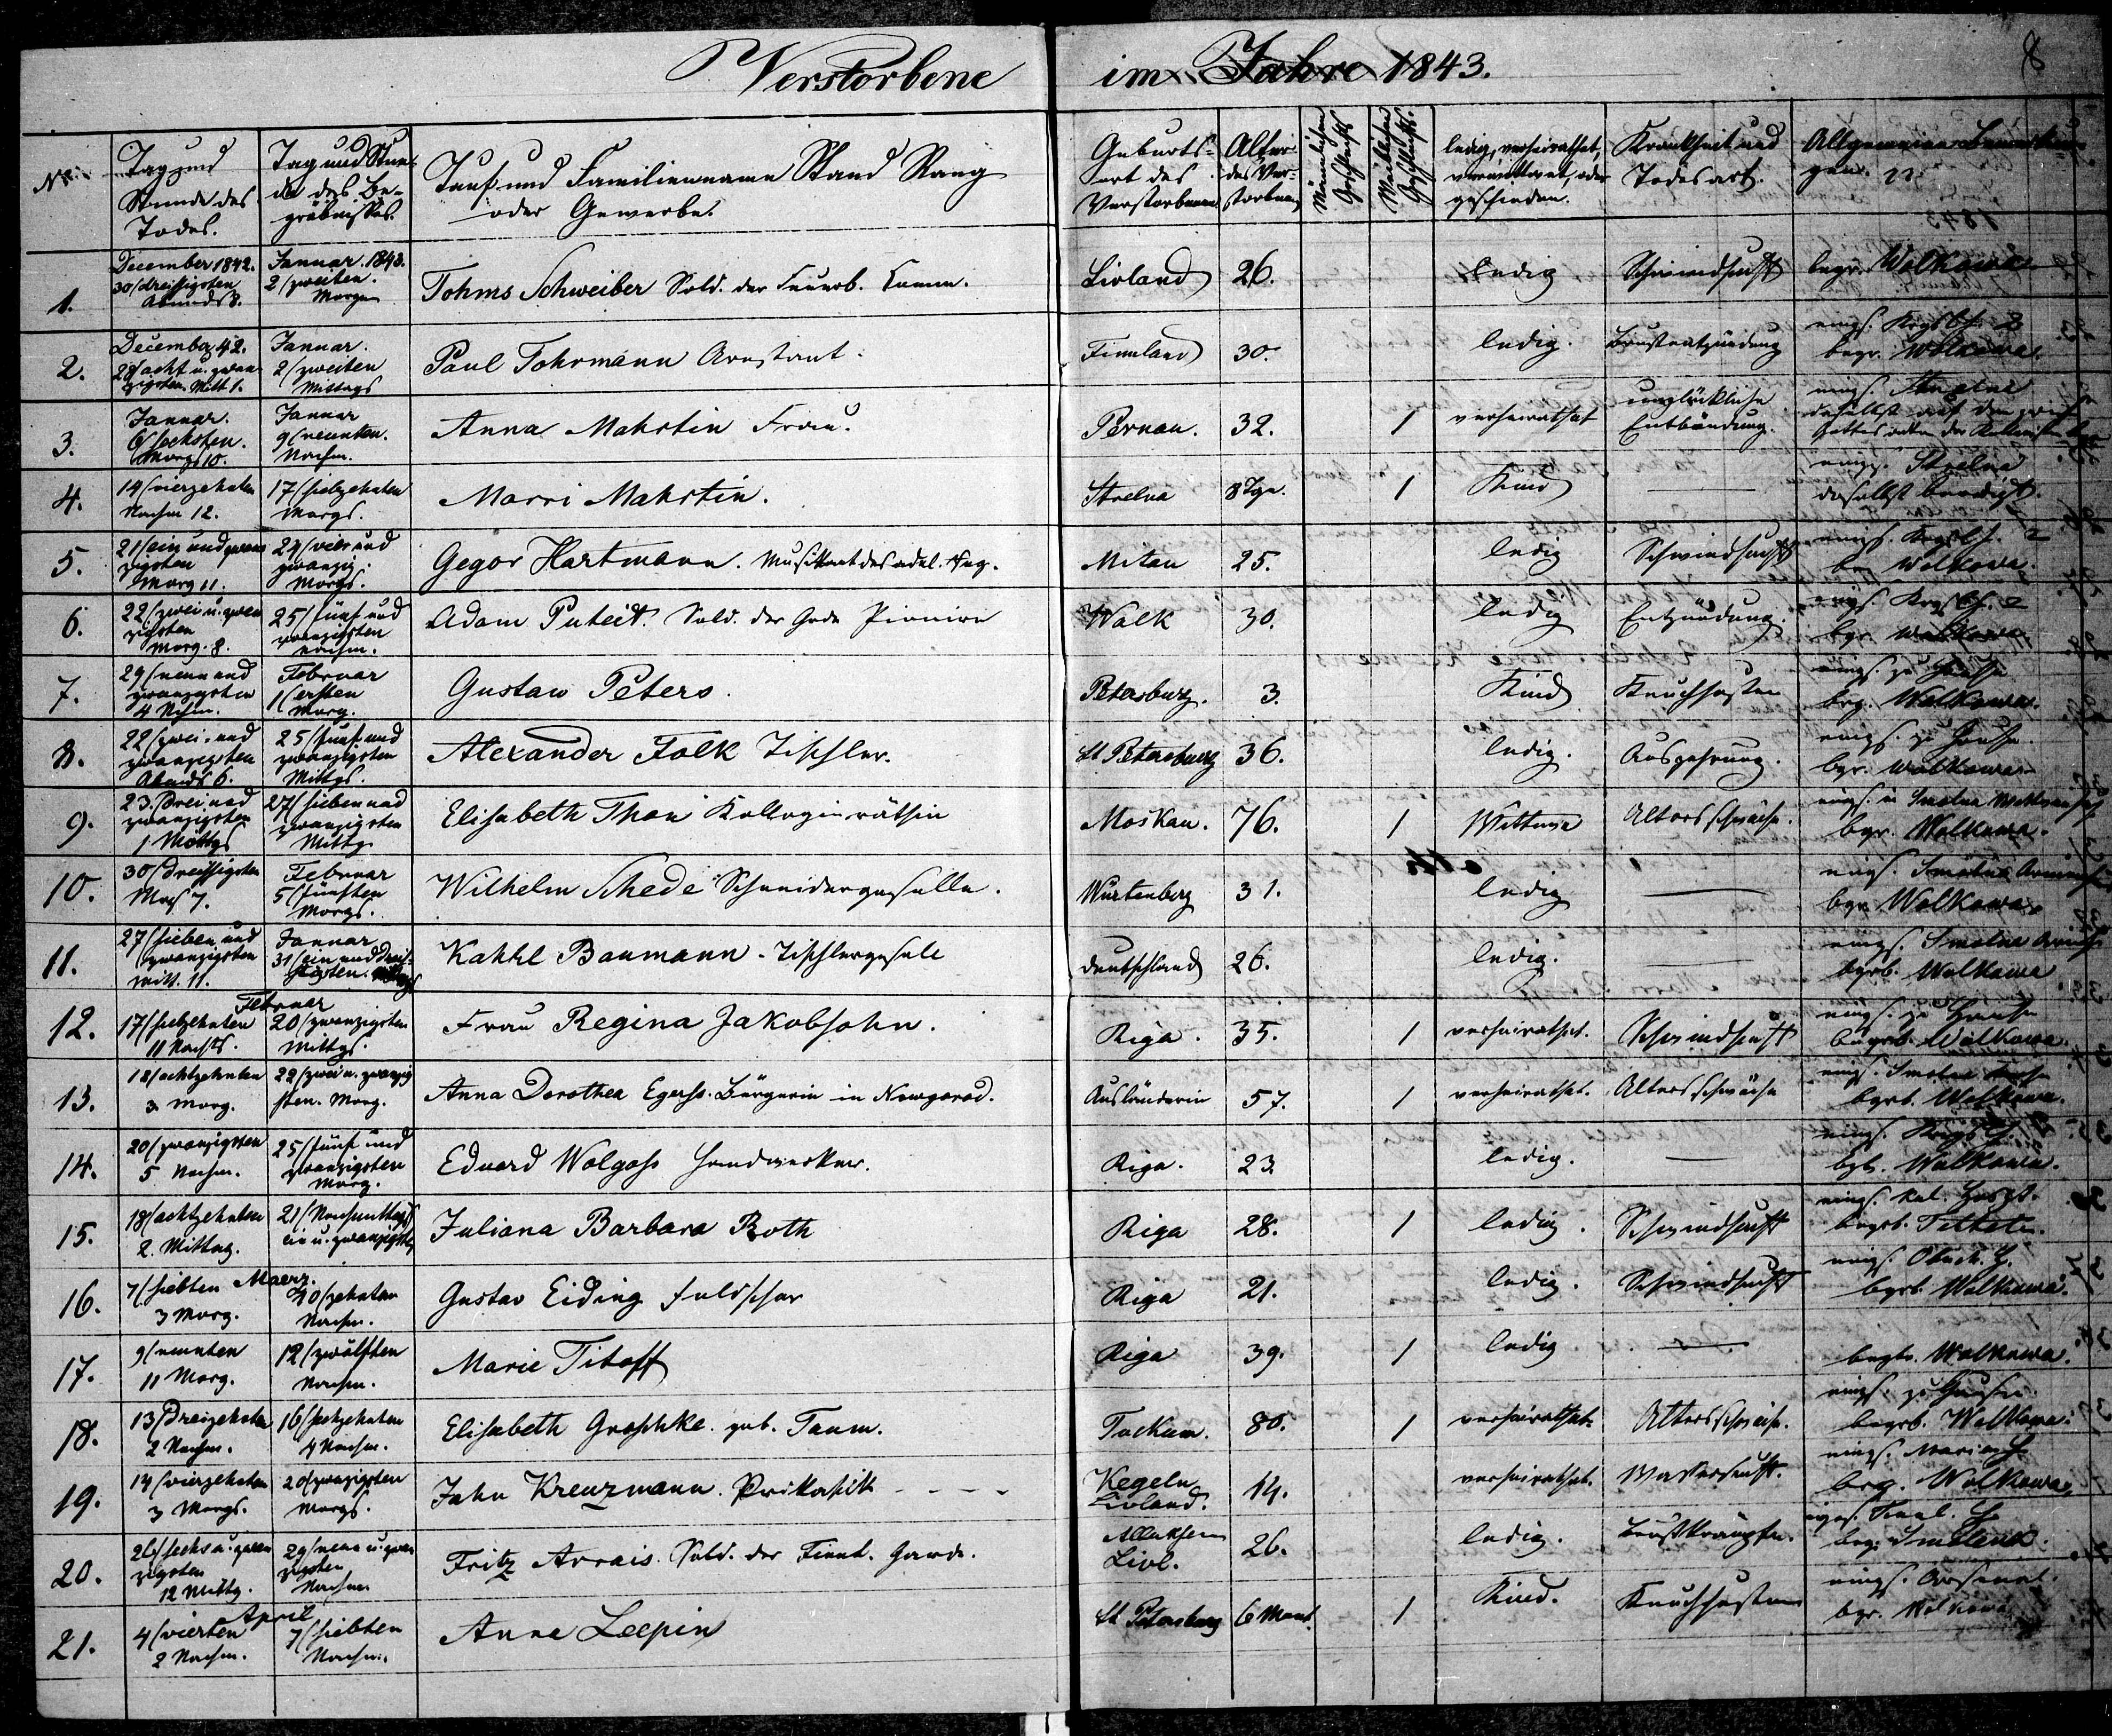 Verstorbene im Jahre 1843.
8
Nr.
Tag und Stunde des Todes.
Tag und Stunde des Begräbnisses.
Tauf und Familienname Stand Rang oder Gewerbe.
Geburtsort des Verstorbenen
Alter des Verstorbenen
Männlichen Geschlechts
Weiblichen Geschlechts.
ledig, verheirathet, verwittwet, oder geschieden.
Krankheit und Todesart.
Allgemeine Bemerkungen.
1. December 1842. 30/dreißigsten Abends 8. Januar. 1843. 2/zweiten. Morgen Tohms Schweiber Sold. der Livland 26. ledig Schwindsucht begr. Wolkowa
2. December 42. 28/acht u. zwanzigsten Mitt 1. Januar. 2/zweiten Mittags Paul Tohrmann Arestant. Finnland 30. ledig. Brustentzündung begr. Wolkowa.
3. Januar. 6/sechsten. Morgs 10. Januar 9/neunten. Nachm. Anna Mahrtin Frau. Pernau. 32. 1 verheirathet unglückliche Entbindung. eings. Strelna daselbst auf dem
4. 14/vierzehnten Nachm 12. 17/siebzehnten Morgs. Marri Mahrtin. Strelna 8 Tge. 1 Kind — eings. Strelna daselbst beerdigt.
5. 21/ein und zwanzigsten Morg 11. 24/vier und zwanzig. Morgs. Gegor Hartmann. Musikant des adel. Reg. Mitau 25. ledig Schwindsucht begr. Wolkowa.
6. 22/zwei u. zwanzigsten Morg. 8. 25/fünf und zwanzigsten Nachm. Adam Puteit. Sold. der Garde Pionire Walk 30. ledig Entzündung. bgr. Wolkowa
7. 29/neun und zwanzigsten 4 Nchm. Februar 1/ersten Morg. Gustaw Peters. Petersburg. 3. Kind Keuchhusten eings. zu Hause beg. Wolkowa.
8. 22/zwei und zwanzigsten Abends 6. 25/fünf und zwanzigsten Mittgs. Alexander Falk Tischler. St Petersburg 36. ledig. Auszehrung. eings. zu Hause. bgr. Wolkowa
9. 23. Drei und zwanzigsten 1 Mittgs 27/sieben und zwanzigsten Mittg. Elisabeth Thon Kollegienräthin Moskau. 76. 1 Wittwe Altersschwäche. eings. in Smolna bgr. Wolkowa.
10. 30/dreißigsten Morgs 7. Februar 5/fünften Morgs. Wilhelm Schede Schneidergeselle. Würtenberg 31. ledig — eings. Smolna bgr. Wolkowa.
11. 27/sieben und zwanzigsten Mitt. 11. Januar 31/ein und dreißigsten. Mittags Kahkl Baumann. Tischlergesele Deutschland 26. ledig. — eings. Smolna bgrb. Wolkowa
12. Februar 17/siebzehnten 11 Nachts. 20/zwanzigsten Mittgs. Frau Regina Jakobsohn. Riga. 35. 1 verheirathet. Schwindsucht eings. zu Hause bgrb. Wolkowa.
13. 18/achtzehnten 3 Morg. 22/zwei u. zwanzigsten. Morg. Anna Dorothea Egerhs. Bürgerin in Nowgorod. Ausländerin 57. 1 verheirathet. Altersschwäche eings. Smolna bgrb. Wolkowa.
14. 20/zwanzigsten 5 Nachm. 25/fünf und zwanzigsten Morg. Eduard Wolgahs Handwerker. Riga. 23 ledig. — bgb. Wolkowa.
15. 18/achtzehnten 2. Mittag. 21/Nachmittags ein u. zwanzigsten Juliana Barbara Roth Riga 28. 1 ledig. Schwindsucht begrb.
16. Maerz. 7/siebten 3 Morg. 10/zehnten Nachm. Gustav Eiding Feldscher Riga 21. ledig. Schwindsucht eings. Obuch. H. bgrb. Wolkowa.
17. 9/neunten 11 Morg. 12/zwölften Nachm. Marie Titoff Riga 39. 1 ledig. — begb. Wolkowa.
18. 13/Dreizehnten 2 Nachm. 16/sechzehnten 4 Nachm. Elisabeth Groschke. geb. Taum. Tuckum. 80. 1 verheirathet. Altersschwäche. eings. zu Hause. begrb. Wolkowa.
19. 14/vierzehnten 3 Morgs. 20/zwanzigsten Morgs. Jahn Kreuzmann. Prikaschik - - - - Kegeln Livland. 14. verheirathet. Wassersucht. eings. Marien H. brg. Wolkowa.
20. 26/sechs u. zwanzigsten 12 Mittg. 29/neun u. zwanzigsten Nachm. Fritz Arrais. Sold. der Finnl. Garde. Livl. 26. ledig. Brustkrämpfe. beg. Smolensk.
21. April 4/vierten 2 Nachm. 7/siebten Nachm. Anna Leepin St Petersburg 6 Mont 1 Kind. Keuchhusten eings. Arsenal. bgr. Wolkowa